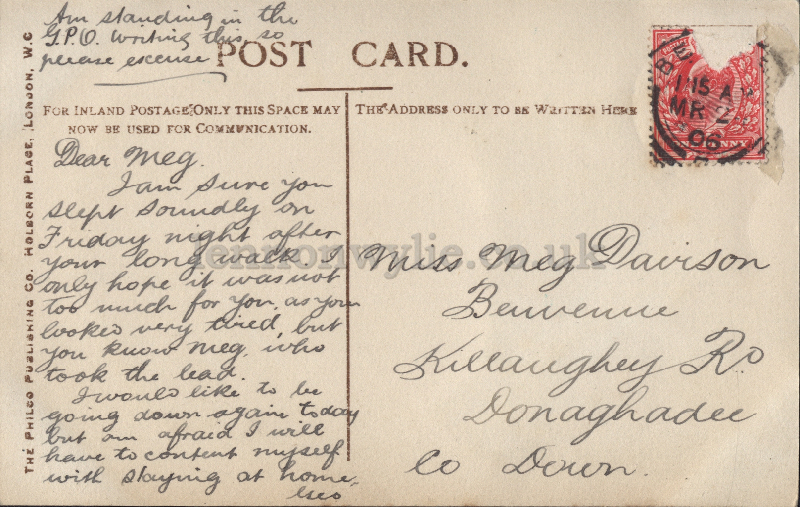 Am standing in the
G.P.O. writing this, so
please excuse
POST CARD.
FOR INLAND POSTAGE ONLY THIS SPACE MAY
NOW BE USED FOR COMMUNICATION.
THE ADDRESS ONLY TO BE WRITTEN HERE
THE PHILCO PUBLISHING CO. HOLBORN PLACE, LONDON, W.C
Dear Meg.
I am sure you
slept soundly on
Friday night after
your long walk. I
only hope it was not
too much for you, as you
looked very tired, but
you know Meg, who
took the lead.
I would like to be
going down again today
but am afraid I will
have to content myself
with staying at home.
Miss Meg Davison
Benvenue
Killaughey Rd
Donaghadee
Co Down.
POSTAGE
ONE PENNY
1 15 A
MR 2
06
lennonwylie.co.uk